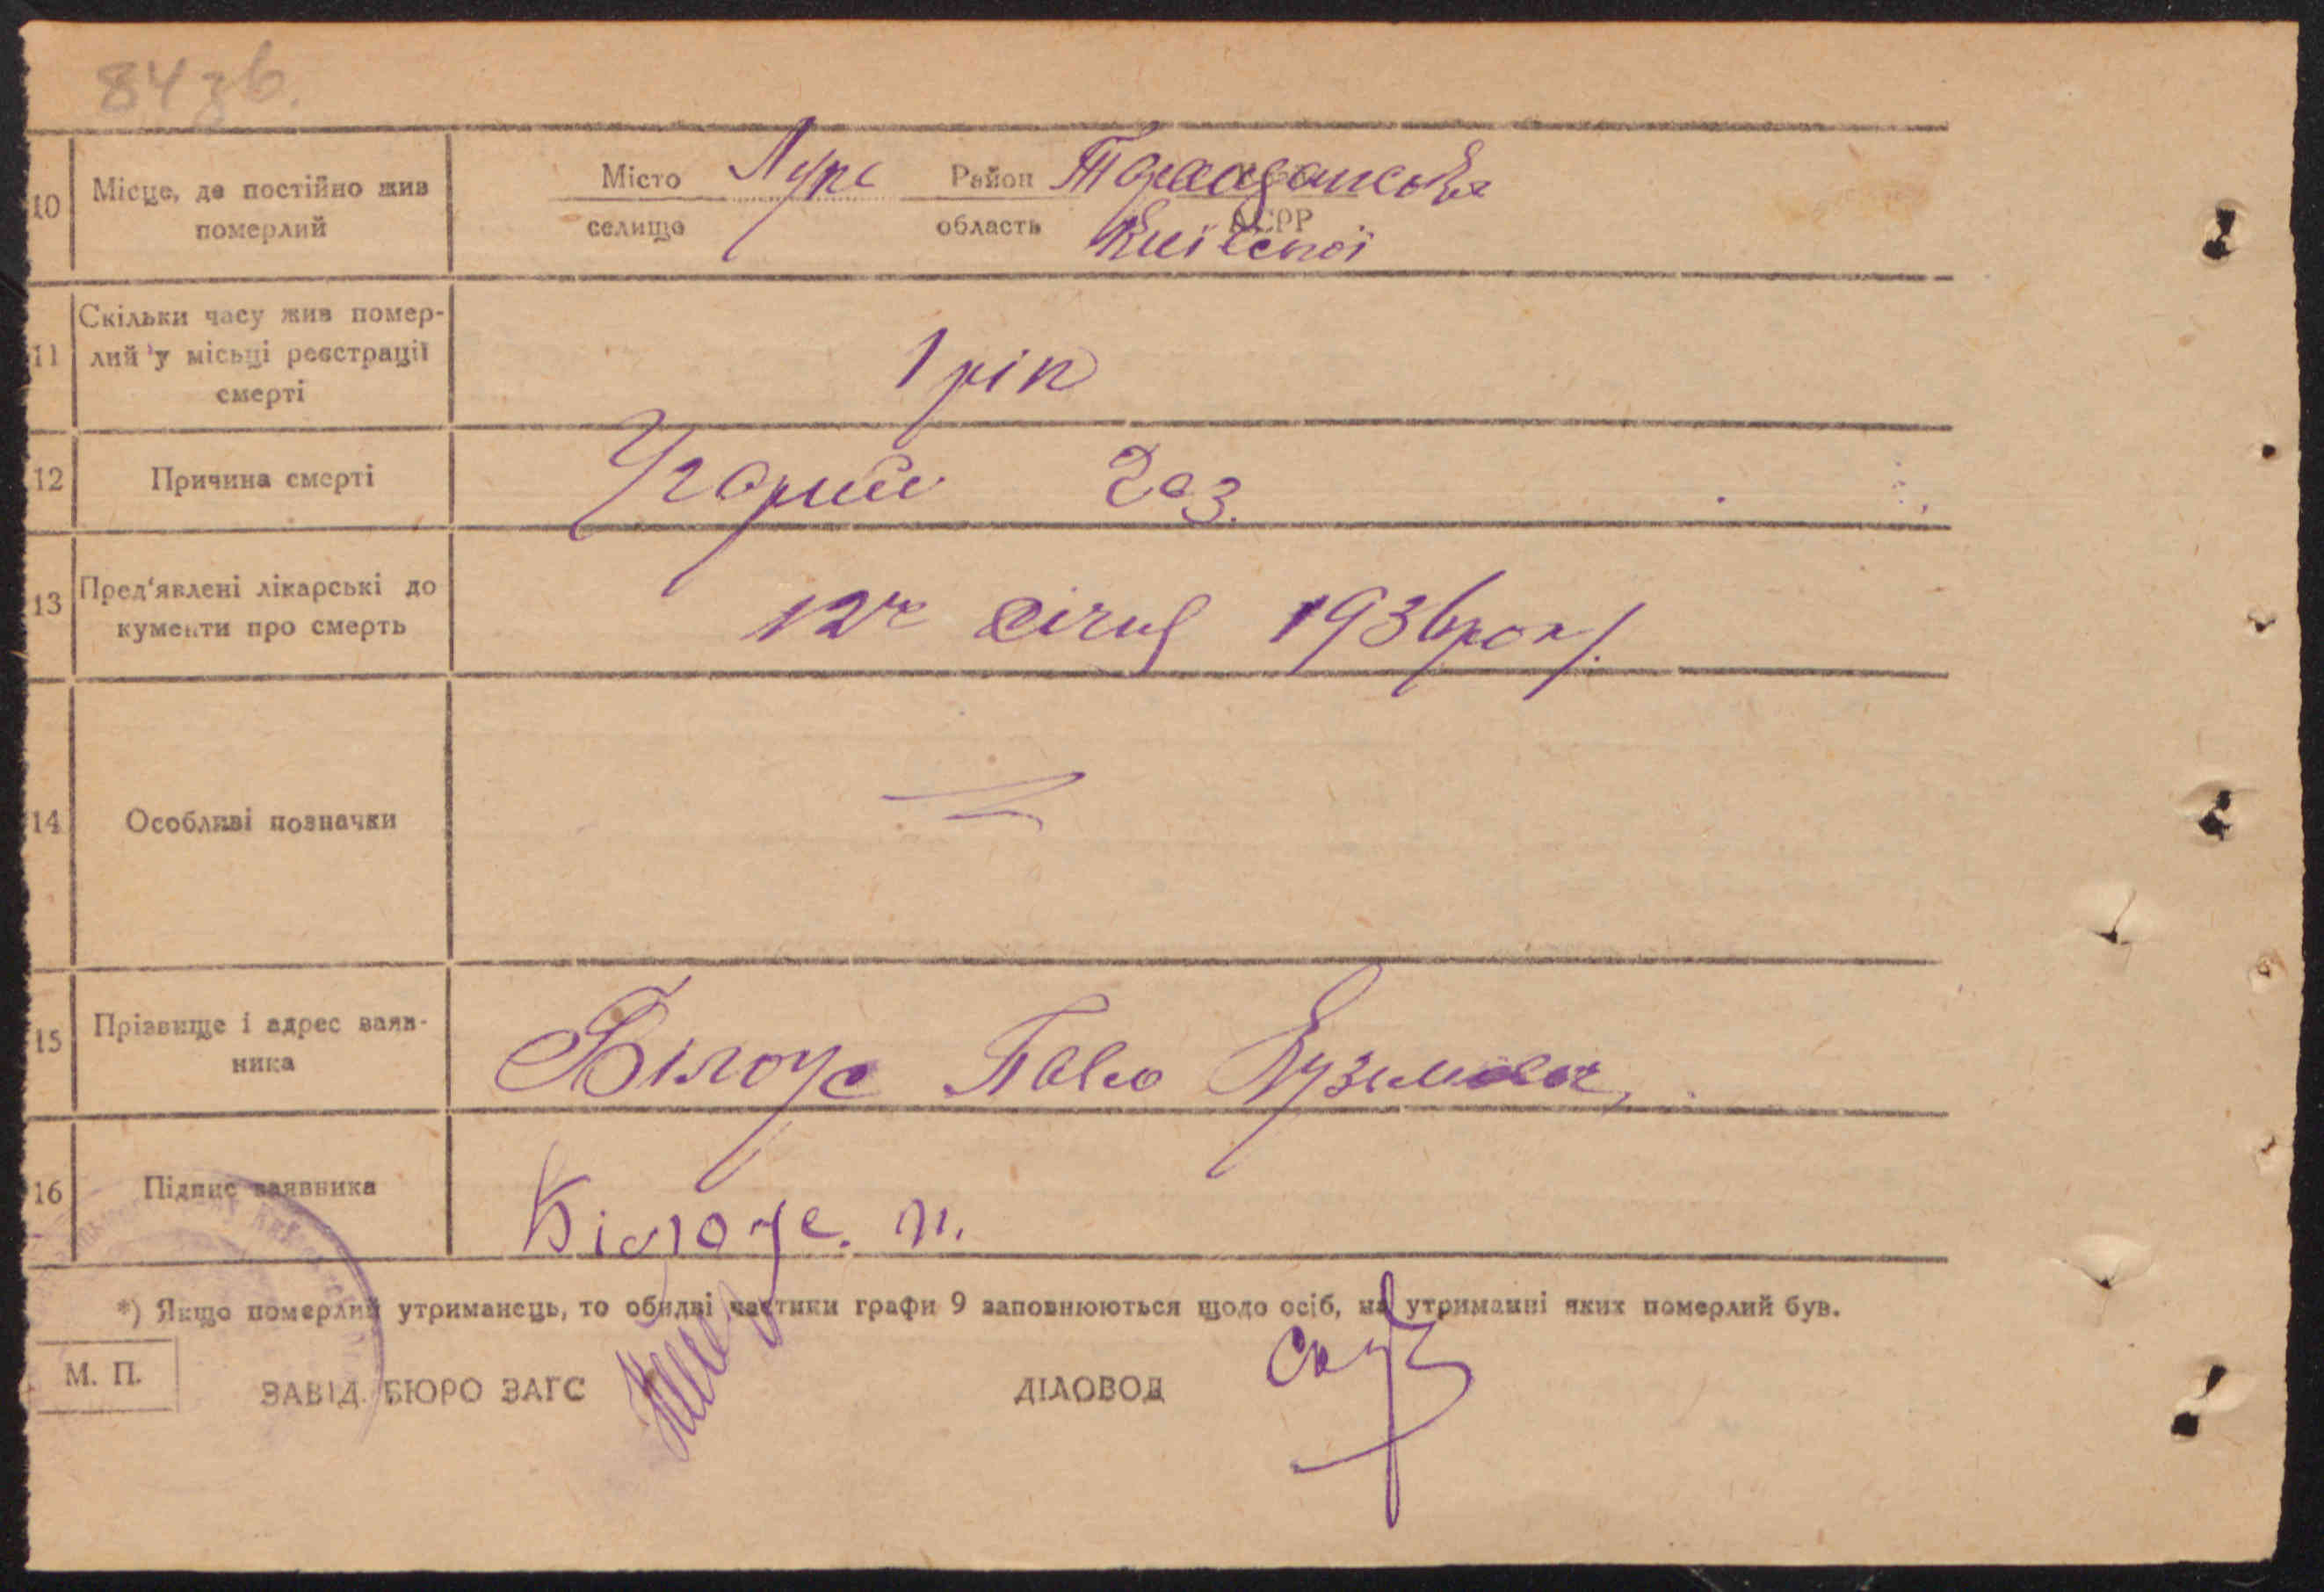 84 зв.
10 Місце, де постійно жив померлий
Місто Лука Район Таращанського
селище область АСРР
Київської
11 Скільки часу жив помер-
лий у місьці реєстрації
смерті
1 рік
12 Причина смерті
Угорів Газ.
13 Пред'явлені лікарські до
кументи про смерть
12го січня 1936 року.
14 Особливі позначки
15 Прізвище і адрес заяв-
ника
Білоус Павло Кузьмович
16 Підпис заявника
Білоус. П.
*) Якщо померлий утриманець, то обидві частини графи 9 заповнюються щодо осіб, на утриманні яких померлий був.
М. П.
ЗАВІД. БЮРО ЗАГС ДІЛОВОД